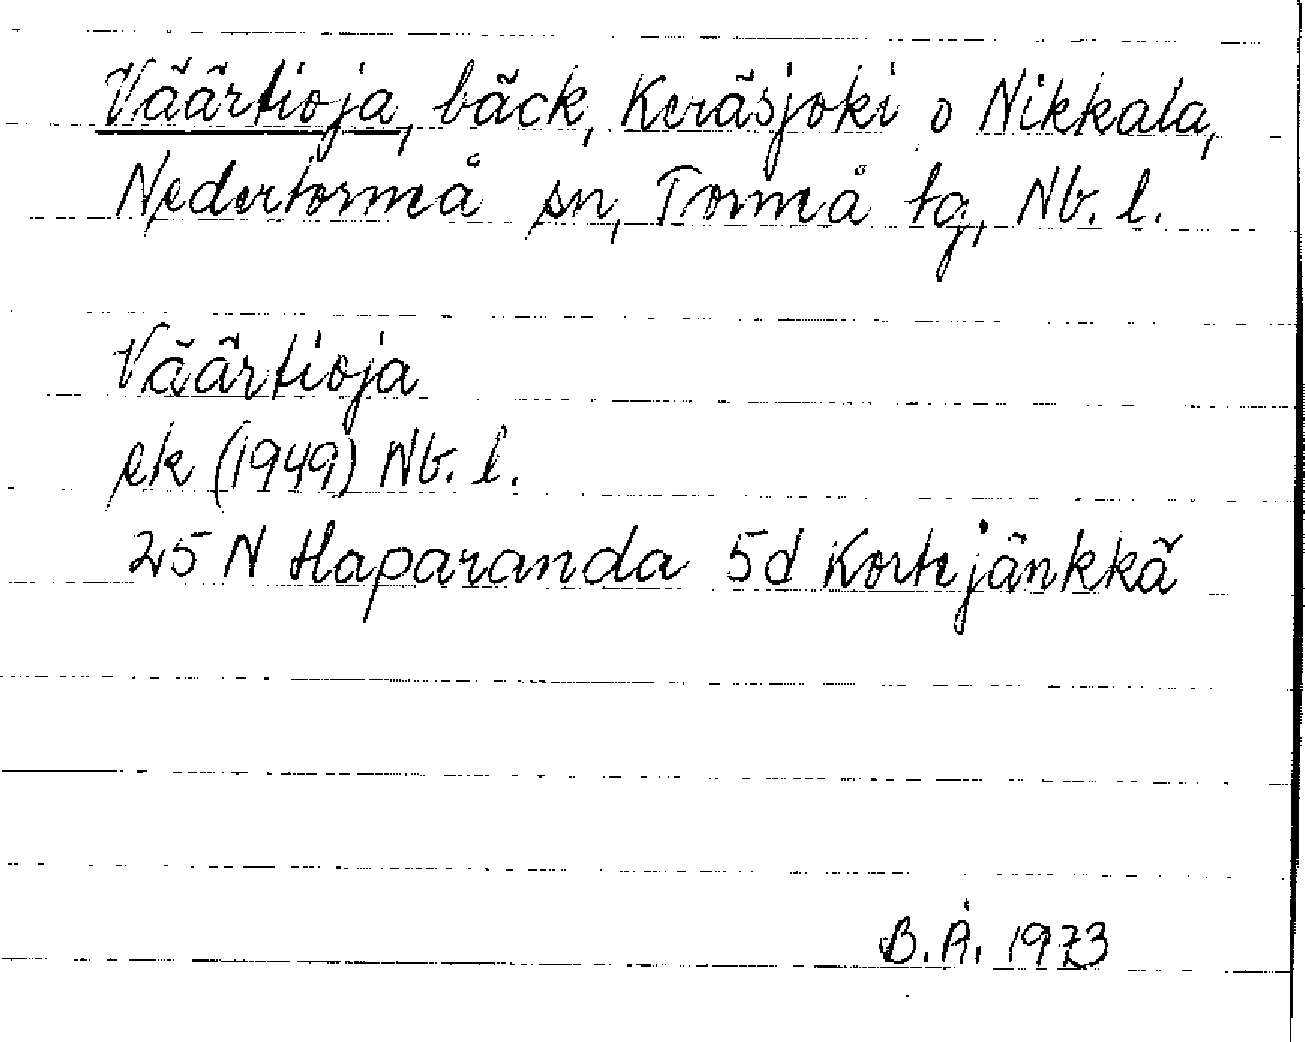 Väärtioja, bäck, Keräsjoki o Nikkala,
Nedertorneå sn, Torneå tg, Nb. l.
Väärtioja
ek (1949) Nb. l.
25 N Haparanda 5d Kortejänkkä
B.Å. 1973